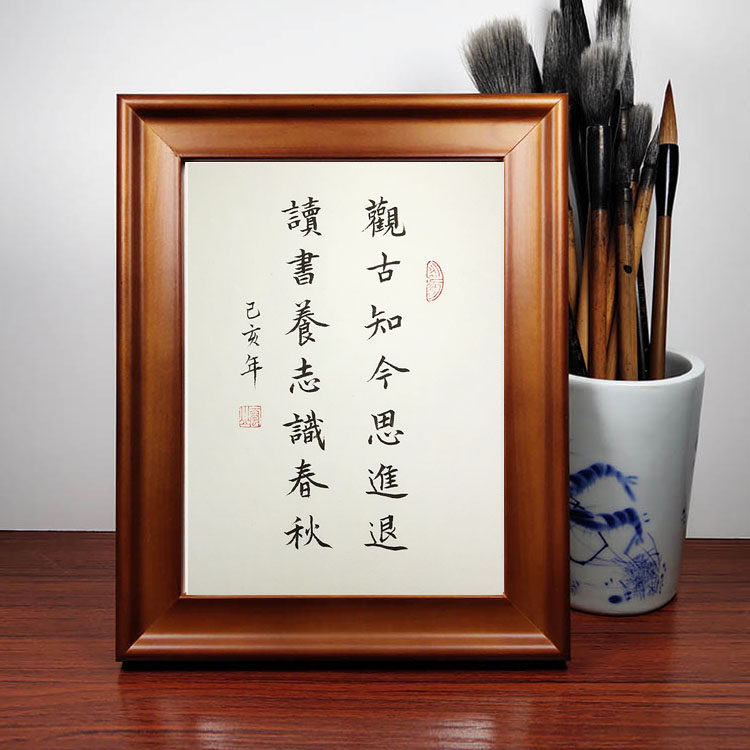 觀古知今思進退
讀書養志識春秋
己亥年